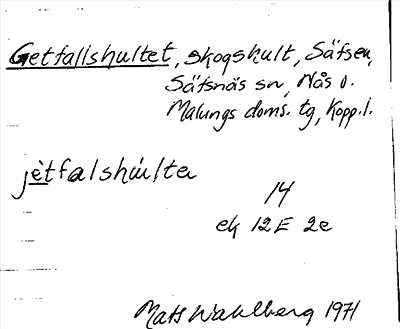 Getfallshultet, skogskult, Säfsen,
Säfsnäs sn, Nås o.
Malungs doms. tg, Kopp. l.
jètfalshúlta
14
ek 12E 2e
Mats Wahlberg 1971